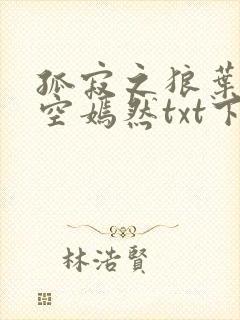 孤寂之狼葉
空嫣然txt下
林浩賢